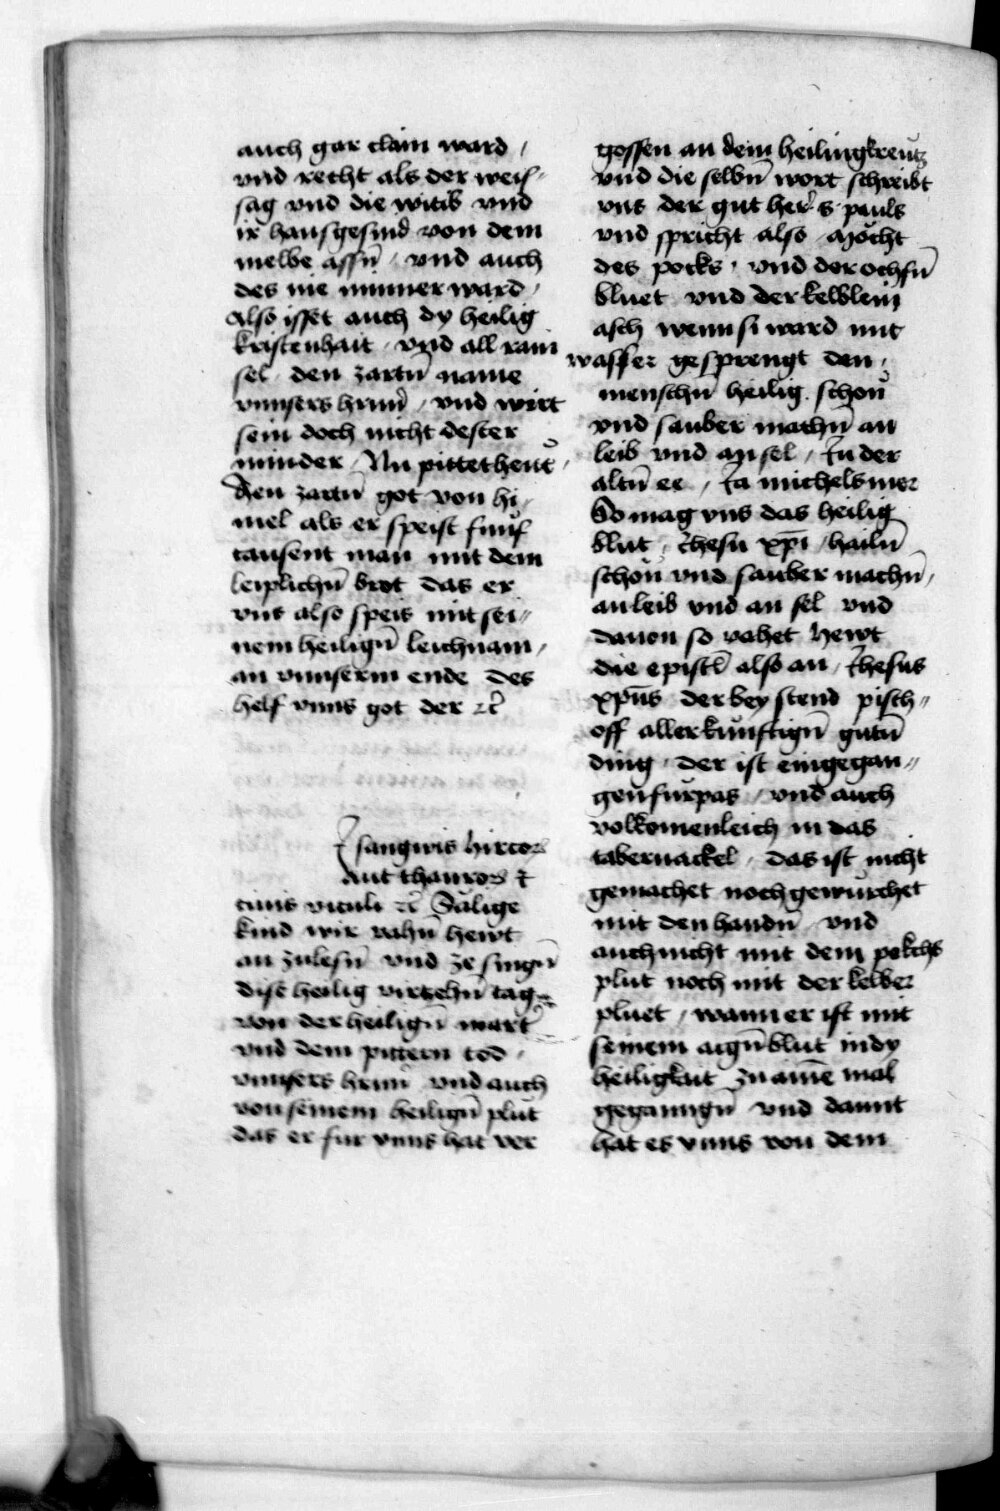 auch gar clain ward /
vnd recht als der weis-
sag vnd die witib vnd
ir hausgesind von dem
melbe assn̄ / vnd auch
des nie minner ward /
Also isset auch dy heilig
kristenhait / vnd all rain
sel / den zartn̄ name
vnnsers hrnn̄ / vnd wirt
sein doch nicht dester
minder / Nu pittet heut /
den zartn̄ got von hi /
mel als er speist funf
tausent man mit dem
leiplichn̄ brot das er
vns also speis mit sei //
nem heilign̄ leichnam /
an vnnserm ende des
helf vnns got der ꝛc̄
Si sangwis hircoꝝ
Aut thauroꝝ ⁊
cinis vituli ꝛc̄ Sälige
kind wir vahn̄ hewt
an zulesn̄ vnd ze singn̄
dise heilig virtzehn̄ tag
von der heilign̄ marter
vnd dem pittern tod /
vnnsers hrnn̄ vnd auch
von seinem heilign̄ plut
das er fur vnns hat ver
gossen an dem heiling kreutz
vnd die selbn̄ wort schreibt
vns der gut her s pauls
vnd spricht also Mocht
des pocks / vnd der ochsn̄
bluet vnd der kelblein
asch wenn si ward mit
wasser gesprengt den /
menschn̄ heilig schon
vnd sauber machn̄ an
leib vnd an sel / In der
altn̄ ee / Ja michels mer
So mag vns das heilig
blut / Jhesu xp̄i / hailn̄
schon vnd sauber machn̄ /
an leib vnd an sel vnd
dauon so vahet hewt
die epistl̄ also an / Jhesus
xp̄us der bey stend pisch //
off aller kunftign̄ gutn̄
ding / der ist eingegan //
gen furpas / vnd auch
volkomenleich in das
tabernackel / das ist nicht
gemachet noch gewurchet
mit den handn̄ vnd
auch nicht mit dem pekchs
plut noch mit der kelber
pluet / wann er ist mit
seinem aign̄ blut in dy
heiligkait zu aine mal
gegangn̄ vnd damit
hat es vnns von dem